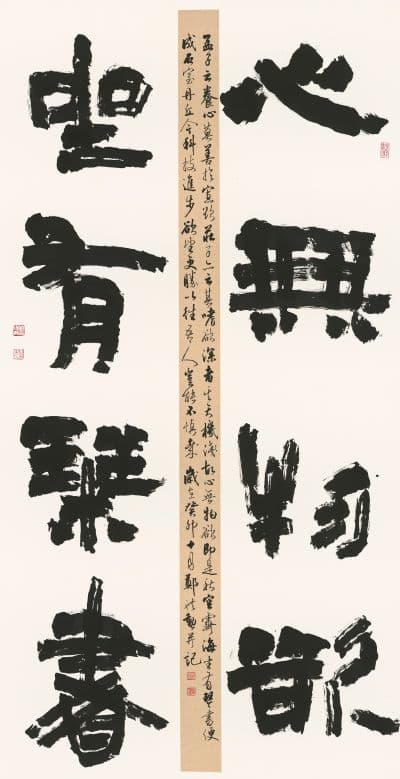 心無物欲
孟子云養心莫善於寡欲莊子亦云其嗜欲深者其天機淺故心無物欲即是秋空霽海坐有琴書便
成石室丹丘今科技進步欲望更勝以往吾人豈能不慎哉歲在癸卯十月鄭勳并記
坐有琴書